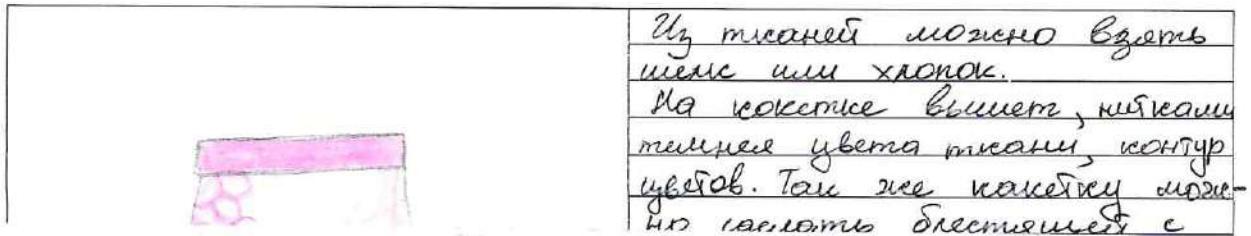 Из тканей можно взять
шелк или хлопок.
На кокетке вышит, нитками
темнея цвета ткани, контур
цветов. Так же какетку мож-
но сделать блестящей с